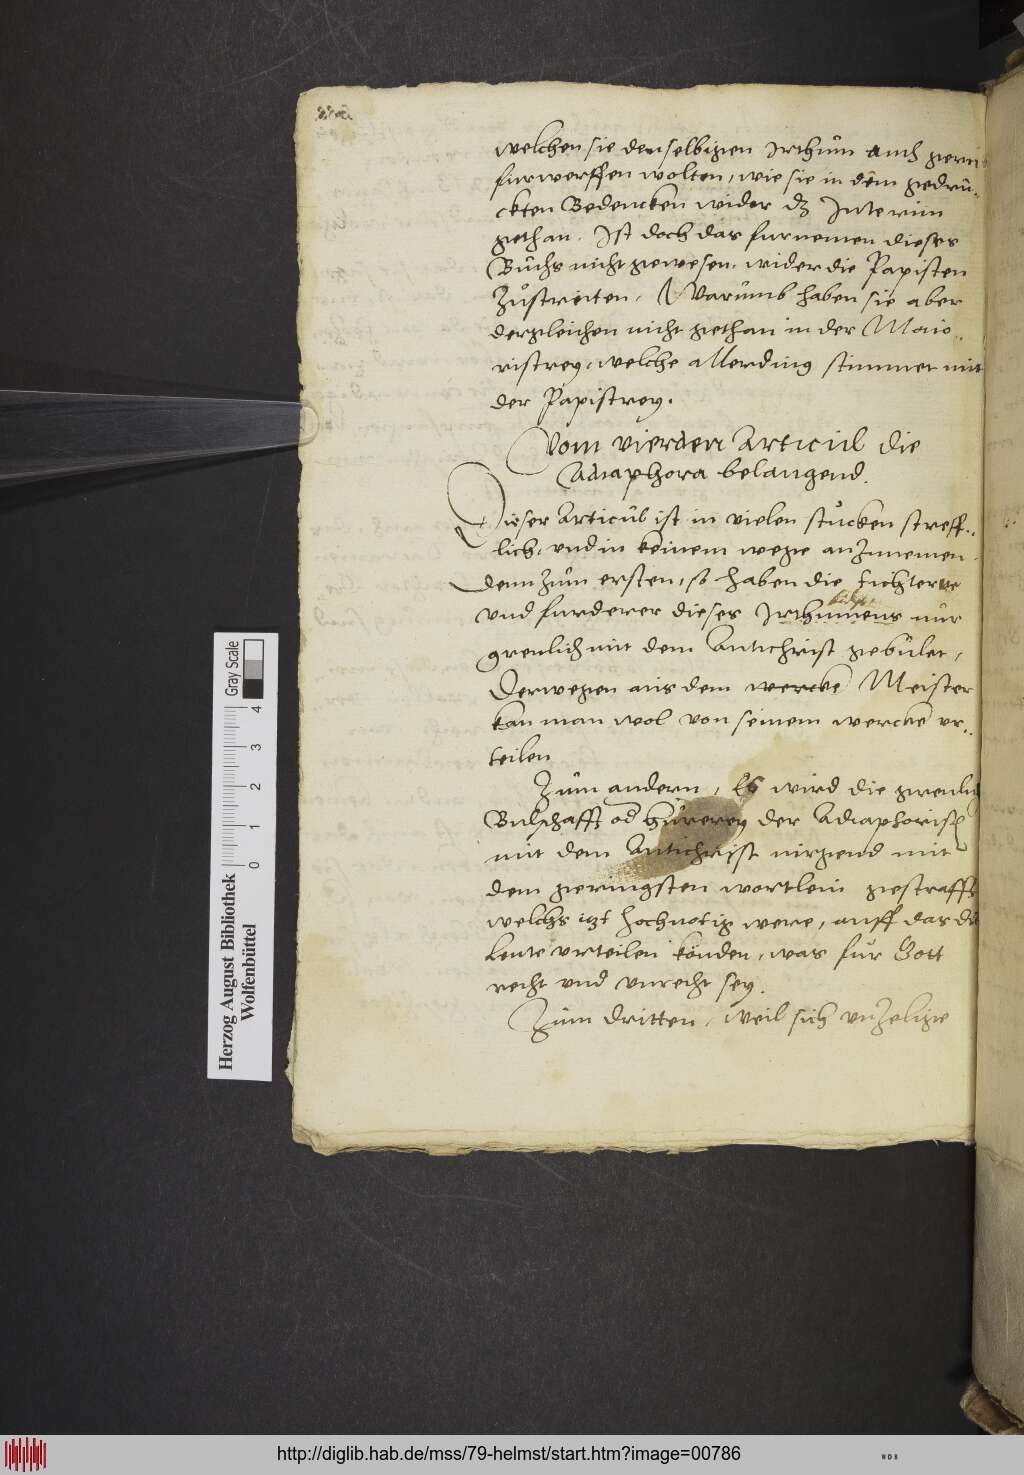 welchen sie denselbigen Irthům auch gern
furwerffen wolten, wie sie in dem gedrů-
ckten Bedencken wider dz Interim
gethan. Ist doch das furnemen dieses
Bůchs nicht gewesen, wider die Papisten
Zůstreiten, Warůmb haben sie aber
dergleichen nicht gethan in der Maio-
ristrey, welche allerding stimmet mit
der Papistrey.
Vom vierden Articul die
Adiaphora belangend.
Dieser Articůl ist in vielen stůcken streff-
lich, und in keinem wege anZunemen
denn Zům ersten, so haben die tichter
und furderer dieses Irthumens nůr
grenlich mit dem Antichrist gebůlet,
Derwegen aus dem wercke Meister
kan man wol von seinem wercke ur-
teilen
Zům andern, Es wird die grenlich
Bulschafft od hůrerey der Adiaphorist
mit dem Antichrist nirgend mit
dem geringsten wortlein gestrafft
welchs itzt hochnotig were, auff das die
Leute urteilen kŏnden, was fůr Gott
recht und unrecht sey.
Zům dritten, weil sich unZelige
Herzog August Bibliothek
Wolfenbüttel
Gray Scale
0 1 2 3 4
http://diglib.hab.de/mss/79-helmst/start.htm?image=00786